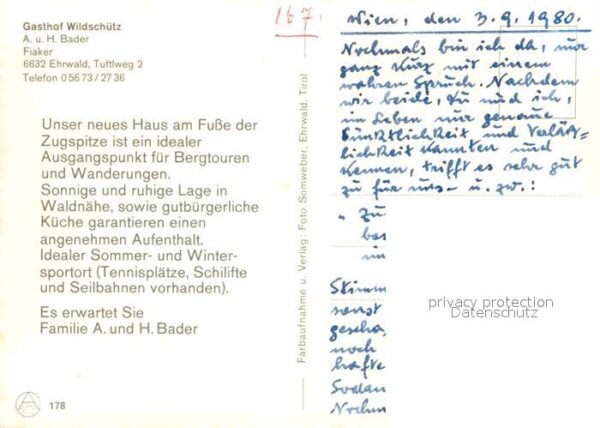 Gasthof Wildschütz
A. u. H. Bader
Fiaker
6632 Ehrwald, Tuftlweg 2
Telefon 0 56 73 / 27 36
Unser neues Haus am Fuße der
Zugspitze ist ein idealer
Ausgangspunkt für Bergtouren
und Wanderungen.
Sonnige und ruhige Lage in
Waldnähe, sowie gutbürgerliche
Küche garantieren einen
angenehmen Aufenthalt.
Idealer Sommer- und Winter-
sportort (Tennisplätze, Schilifte
und Seilbahnen vorhanden).
Es erwartet Sie
Familie A. und H. Bader
178
Farbaufnahme u. Verlag: Foto Somweber, Ehrwald, Tirol
167.
Wien, den 3.9.1980.
Nochmals bin ich da, nur
ganz kurz mit einem
wahren Spruch. Nachdem
wir beide, du und ich,
im Leben nur genaue
Pünktlichkeit und Verläß-
lichkeit kannten und
kennen, trifft es sehr gut
zu für uns - u. zw.:
" Zu
bas
im
Stimm
sonst
gescha
noch
hafte
Sodan
Nochm
privacy protection
Datenschutz